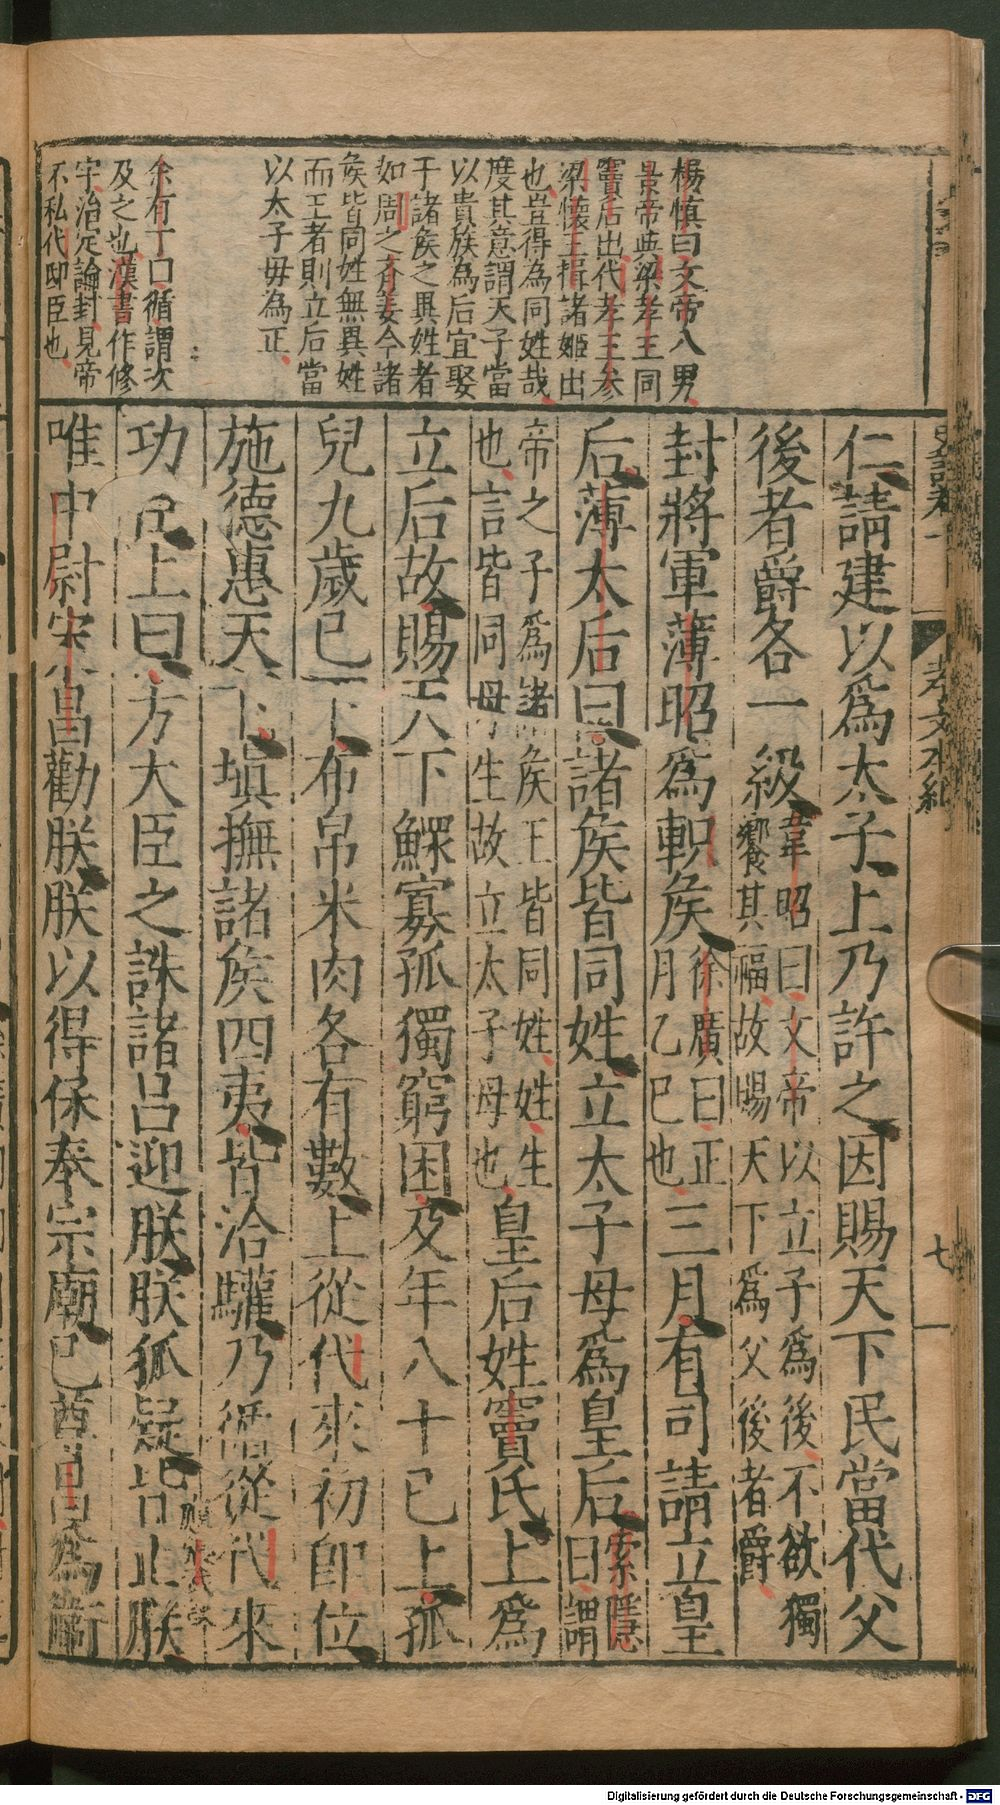 楊慎曰文帝八男
景帝與梁孝王同
竇后出代孝王參
梁懷王揖諸姬出
也豈得為同姓哉
度其意謂天子當
以貴族為后宜娶
于諸侯之異姓者
如周之齊姜今諸
侯皆同姓無異姓
而王者則立后當
以太子母為正
余有丁曰循謂次
及之也漢書作修
字治定論封見帝
不私代邸臣也
孝文本紀
七
仁請建以爲太子上乃許之因賜天下民當代父
後者爵各一級韋昭曰文帝以立子爲後不欲獨饗其福故賜天下爲父後者爵
封將軍薄昭爲軹侯徐廣曰正月乙巳也三月有司請立皇
后薄太后曰諸侯皆同姓立太子母爲皇后索隱曰謂
帝之子爲諸侯王皆同姓姓生也言皆同母生故立太子母也皇后姓竇氏上爲
立后故賜天下鰥寡孤獨窮困及年八十已上孤
兒九歲已下布帛米肉各有數上從代來初即位
施德惠天下塡撫諸侯四夷皆洽驩乃循從代來
功臣上曰方大臣之誅諸呂迎朕朕狐疑皆止朕
唯中尉宋昌勸朕朕以得保奉宗廟已尊昌爲衛
Digitalisierung gefördert durch die Deutsche Forschungsgemeinschaft - DFG